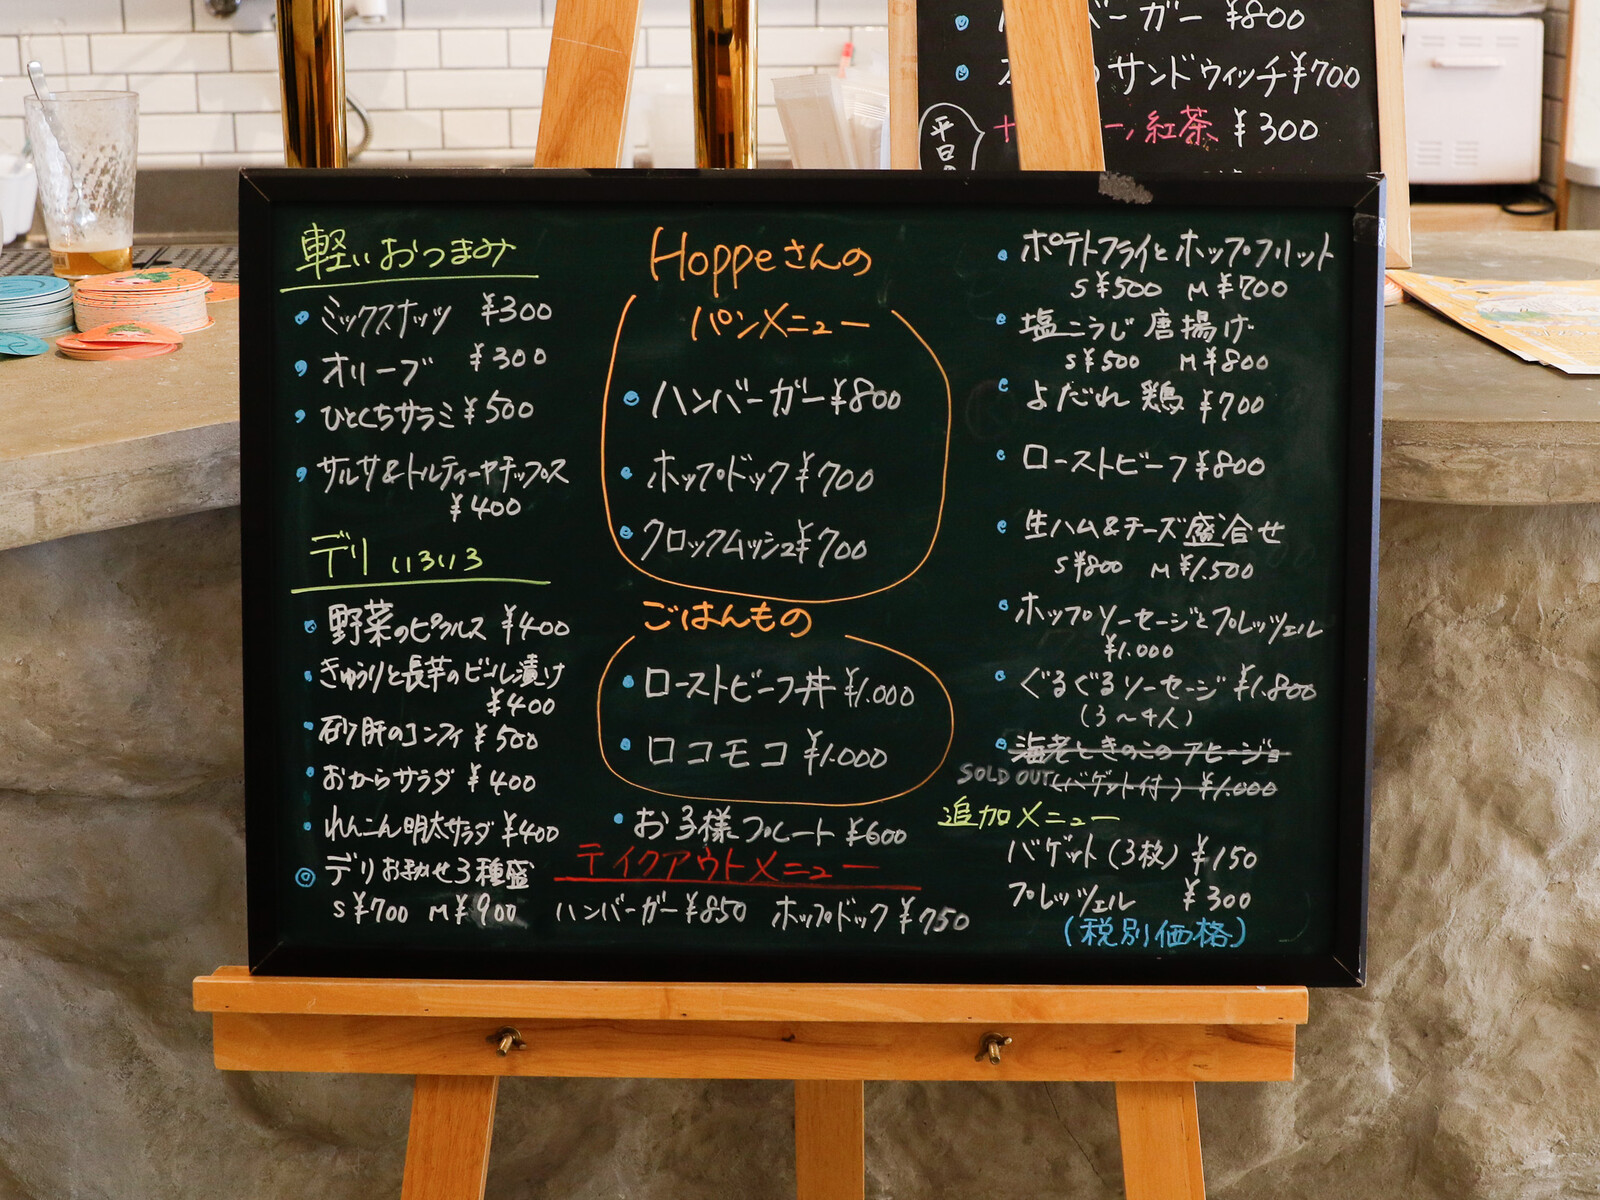 バーガー ¥800
サンドウィッチ ¥700
紅茶 ¥300
平日
軽いおつまみ
ミックスナッツ ¥300
オリーブ ¥300
ひとくちサラミ ¥500
サルサ&トルティーヤチップス
¥400
デリ いろいろ
野菜のピクルス ¥400
きゅうりと長芋のビール漬け
¥400
砂肝のコンフィ ¥500
おからサラダ ¥400
れんこん明太サラダ ¥400
デリお勧せ3種盛
S¥700 M¥900
Hoppeさんの
パンメニュー
ハンバーガー ¥800
ホップドック ¥700
クロックムッシュ ¥700
ごはんもの
ローストビーフ丼 ¥1.000
ロコモコ ¥1.000
お子様プレート ¥600
テイクアウトメニュー
ハンバーガー ¥850 ホップドック ¥750
ポテトフライとホップフリット
S¥500 M¥700
塩こうじ唐揚げ
S¥500 M¥800
よだれ鶏 ¥700
ローストビーフ ¥800
生ハム&チーズ盛合せ
S¥800 M¥1.500
ホップソーセージとプレッツェル
¥1.000
ぐるぐるソーセージ ¥1.800
(3〜4人)
海老ときのこのアヒージョ
SOLD OUT (バゲット付) ¥1.000
追加メニュー
バゲット(3枚) ¥150
プレッツェル ¥300
(税別価格)